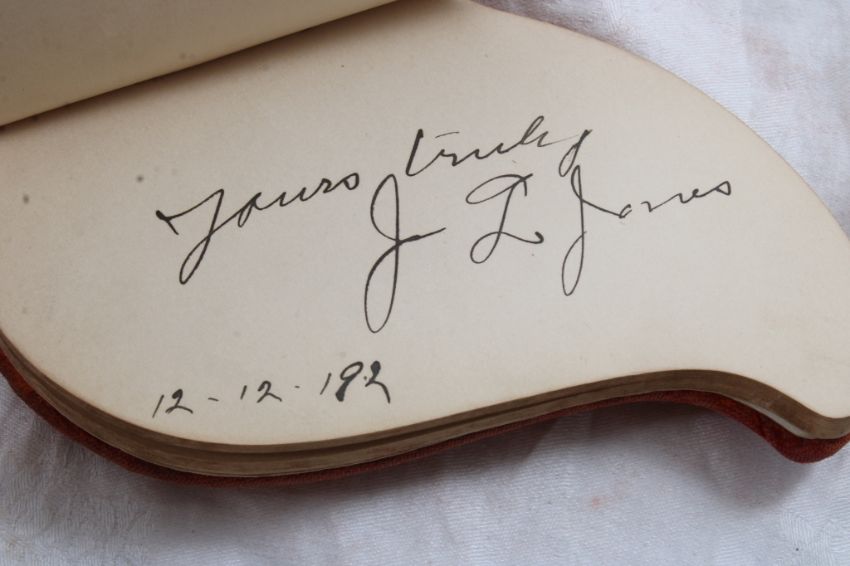 Yours truly
J L Jones
12-12-192